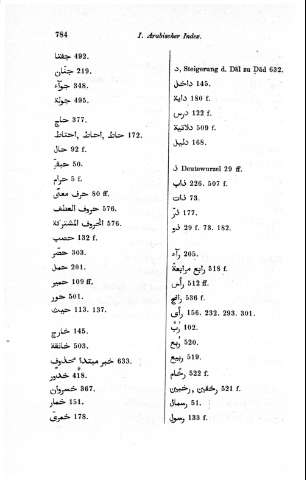 784
I. Arabischer Index.
جفنا 492.
جفان 219.
جوآء 348.
جونة 495.
حاج 377.
حاط, احاط, احتاط 172.
حال 92 f.
حبقر 50.
حرام 5 f.
حرف معنًى 80 ff.
حروف العطف 576.
الحروف المشتركة 576.
حسب 132 f.
حضر 303.
حمل 201.
حمير 109 ff.
حور 501.
حيث 113. 137.
خارج 145.
خانقة 503.
خبر مبتدا محذوف 633.
خدور 418.
خمروان 367.
خمار 151.
خمري 178.
د, Steigerung d. Dâl zu Ḍâd 632.
داخل 145.
داية 180 f.
درس 122 f.
دلاتية 509 f.
دليل 168.
ذ Deutewurzel 29 ff.
ذاب 226. 507 f.
ذات 73.
ذر 177.
ذو 29 f. 73. 182.
رآء 205.
رابع مرابعة 518 f.
رأس 512 ff.
رافع 536 f.
رأى 156. 232. 293. 301.
رب 102.
ربع 520.
ربيع 519.
رخام 522 f.
521 f.
رسمال 51.
رسول 133 f.